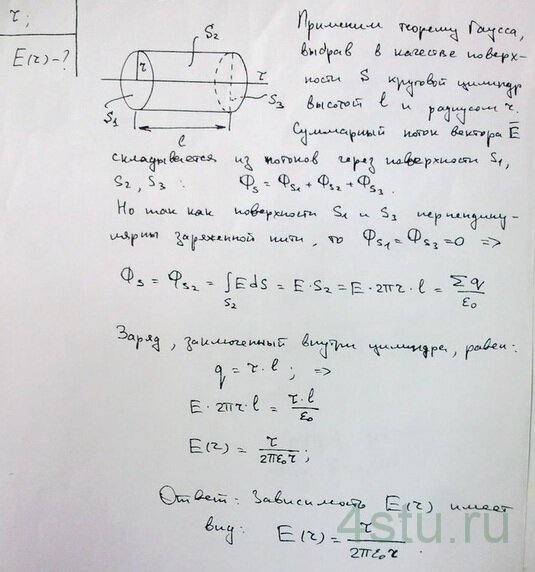 τ;
E(r)-?
S₂
r
τ
S₁
S₃
l
Применим теорему Гаусса,
выбрав в качестве поверх-
ности S круговой цилиндр
высотой l и радиусом r.
Суммарный поток вектора E̅
складывается из потоков через поверхности S₁,
S₂, S₃ : Φ_S = Φ_S₁ + Φ_S₂ + Φ_S₃.
Но так как поверхности S₁ и S₃ перпендику-
лярны заряженной нити, то Φ_S₁ = Φ_S₃ = 0 =>
Φ_S = Φ_S₂ = ∫_S₂ E dS = E·S₂ = E·2πr·l = Σq/ε₀
Заряд, заключенный внутри цилиндра, равен:
q = τ·l ; =>
E·2πr·l = τ·l/ε₀
E(r) = τ/2πε₀r ;
Ответ: Зависимость E(r) имеет
вид: E(r) = τ/2πε₀r.
4stu.ru